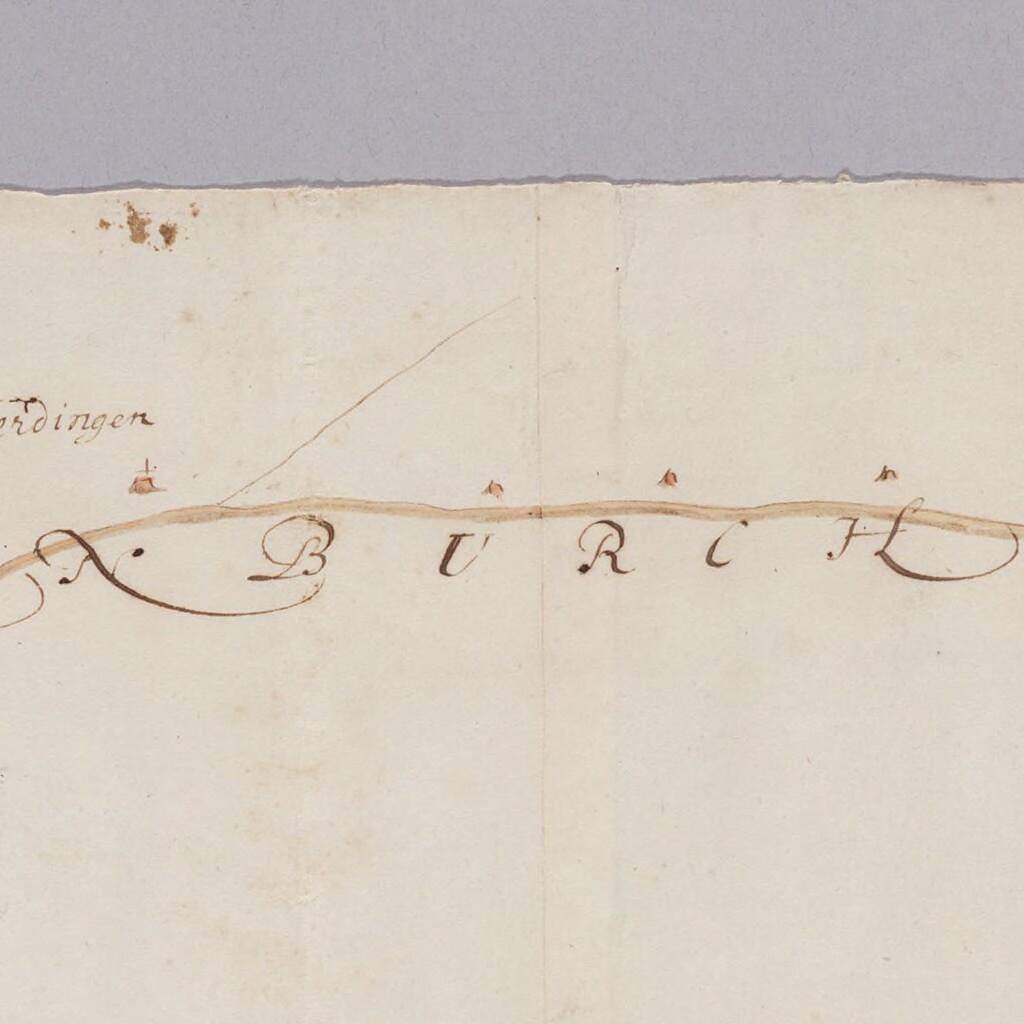 erdingen
N BURCH